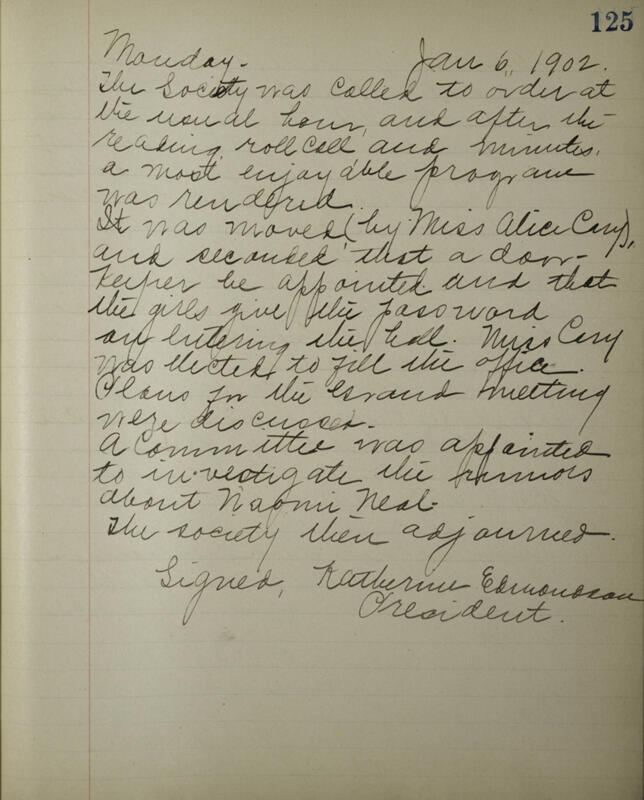 125
Monday. Jan 6, 1902.
The Society was called to order at
the usual hour, and after the
reading, roll call and minutes,
a most enjoyable program
was rendered.
It was moved (by Miss Alice Cary),
and seconded that a door-
keeper be appointed and that
the girls give the password
on entering the hall. Miss Cary
was elected to fill the office.
Plans for the Grand meeting
were discussed.
A committee was appointed
to investigate the rumors
about Naomi Neal.
The society then adjourned.
Signed, Katherine Edmondson
President.